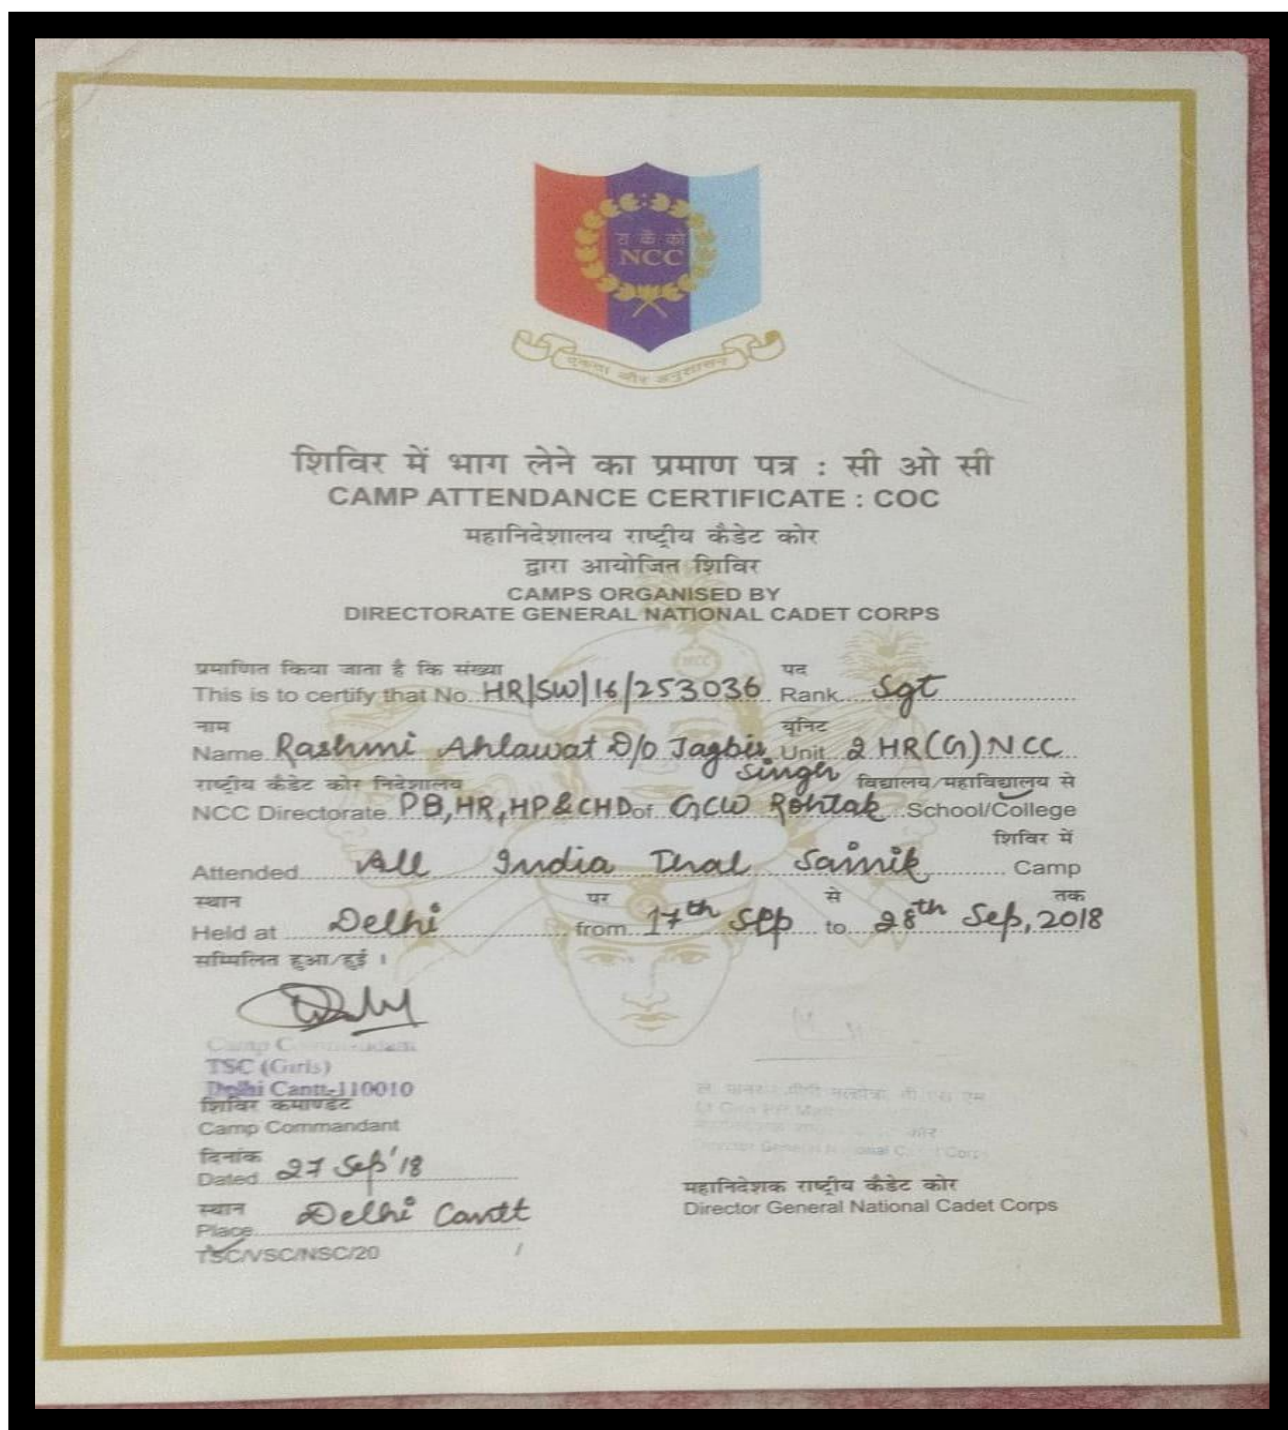 रा कै को
NCC
एकता और अनुशासन
शिविर में भाग लेने का प्रमाण पत्र : सी ओ सी
CAMP ATTENDANCE CERTIFICATE : COC
महानिदेशालय राष्ट्रीय कैडेट कोर
द्वारा आयोजित शिविर
CAMPS ORGANISED BY
DIRECTORATE GENERAL NATIONAL CADET CORPS
प्रमाणित किया जाता है कि संख्या पद
This is to certify that No. HR/SW/16/253036 Rank Sgt
नाम यूनिट
Name Rashmi Ahlawat D/O Jagbir Singh Unit 2 HR(G) NCC
राष्ट्रीय कैडेट कोर निदेशालय विद्यालय/महाविद्यालय से
NCC Directorate PB, HR, HP & CHD of GCW Rohtak School/College
शिविर में
Attended All India Thal Sainik Camp
स्थान पर से तक
Held at Delhi from 17th Sep to 28th Sep, 2018
सम्मिलित हुआ/हुई ।
Camp Commandant
TSC (Girls)
Delhi Cantt-110010
शिविर कमाण्डेंट
Camp Commandant
दिनांक
Dated 27 Sep'18
स्थान
Place Delhi Cantt
TSC/VSC/NSC/20 /
Director General National Cadet Corps
महानिदेशक राष्ट्रीय कैडेट कोर
Director General National Cadet Corps